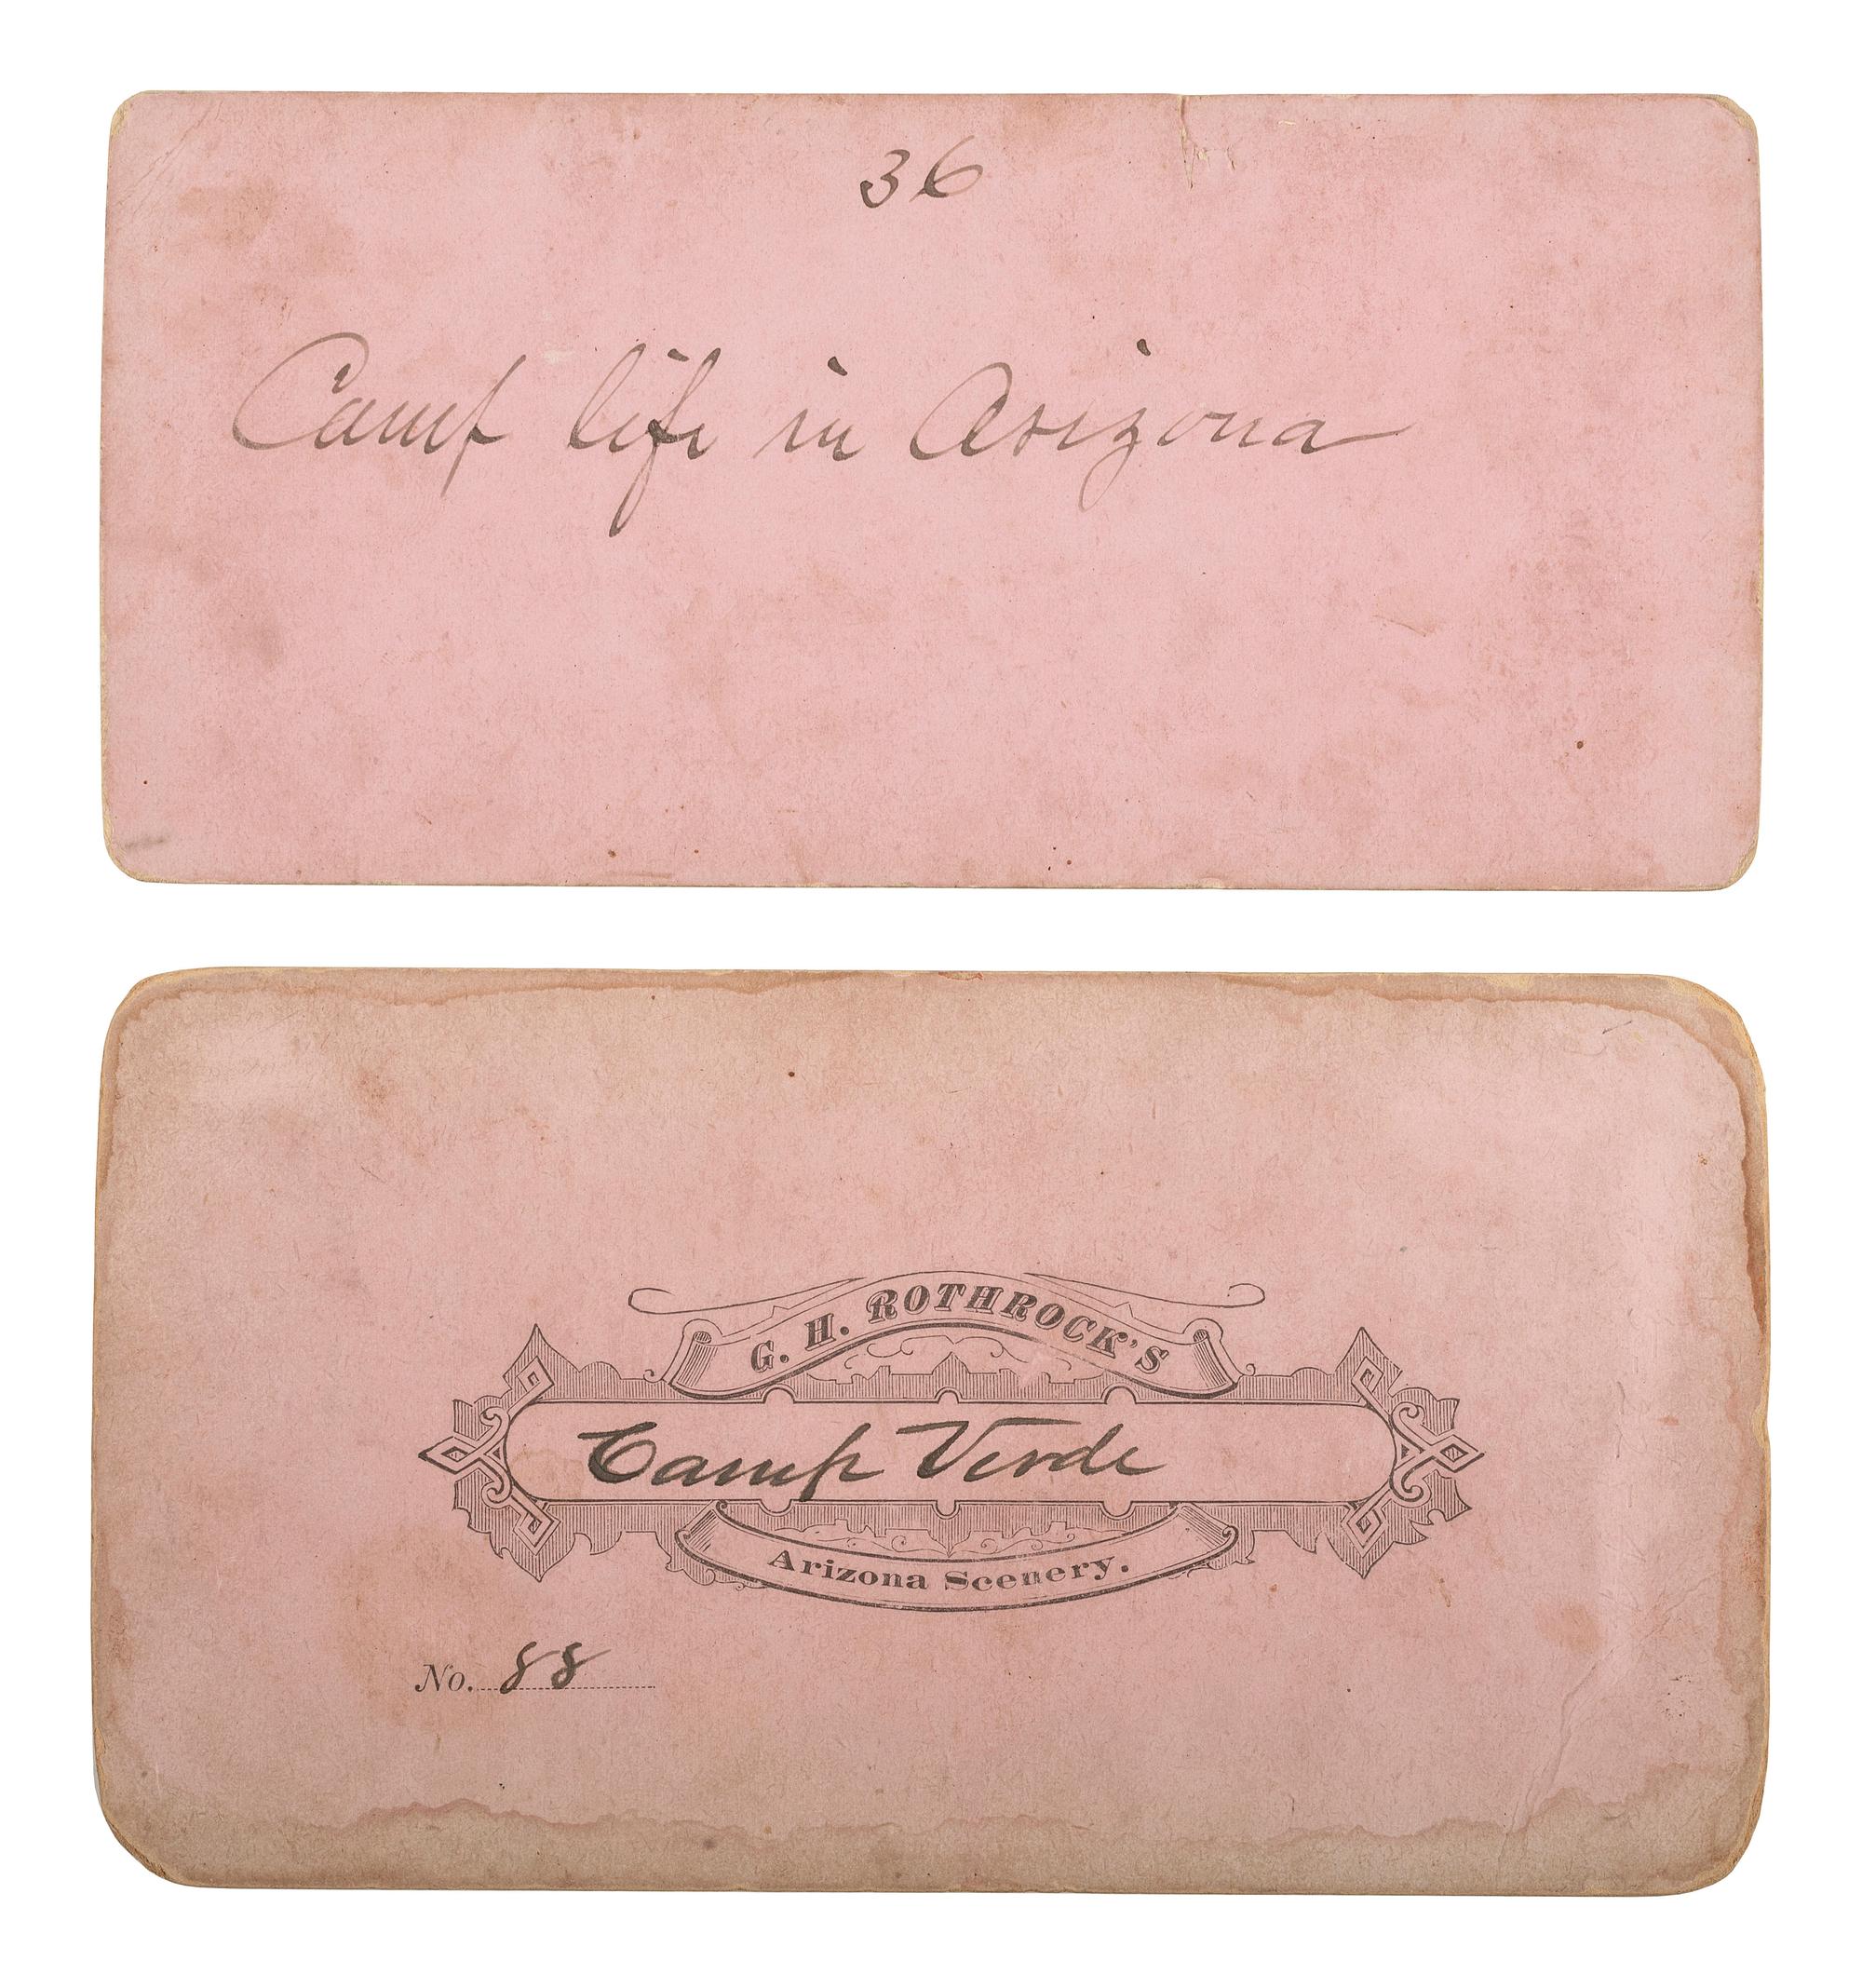 36
Camp life in Arizona
G. H. ROTHROCK'S
Camp Verde
Arizona Scenery.
No. 88